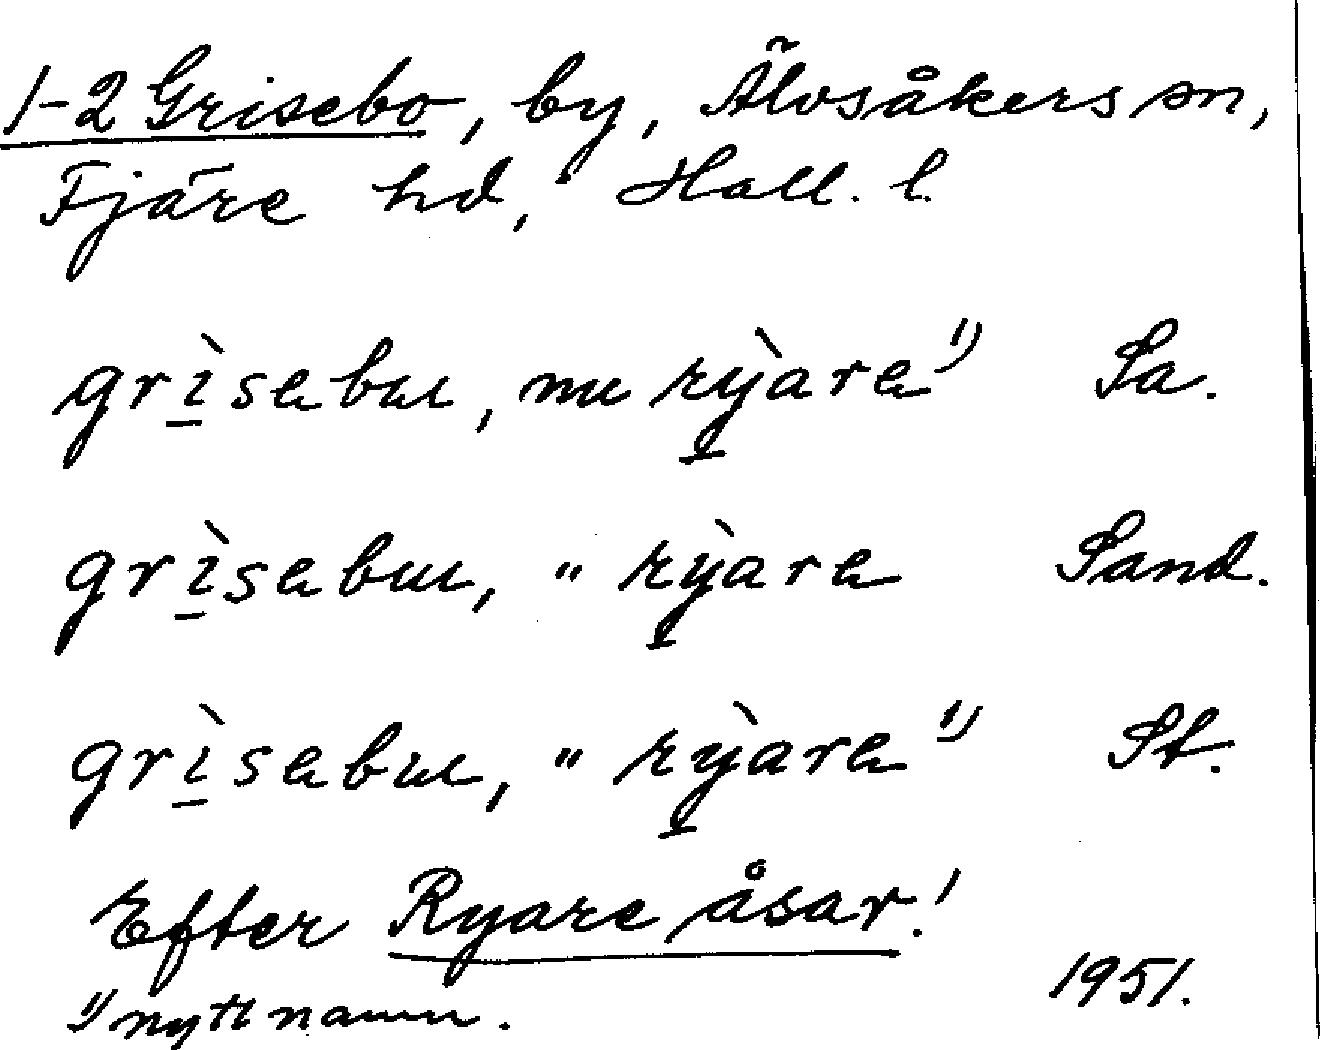 1-2 Grisebo, by, Älvsåkers sn,
Fjäre hd, Hall. l.
grì̱sebu, nu rỳ̱are 1) Sa.
grì̱sebu, " rỳ̱are Sand.
grì̱sebu, " rỳ̱are 1) St.
Efter Ryare åsar!
1) nytt namn. 1951.